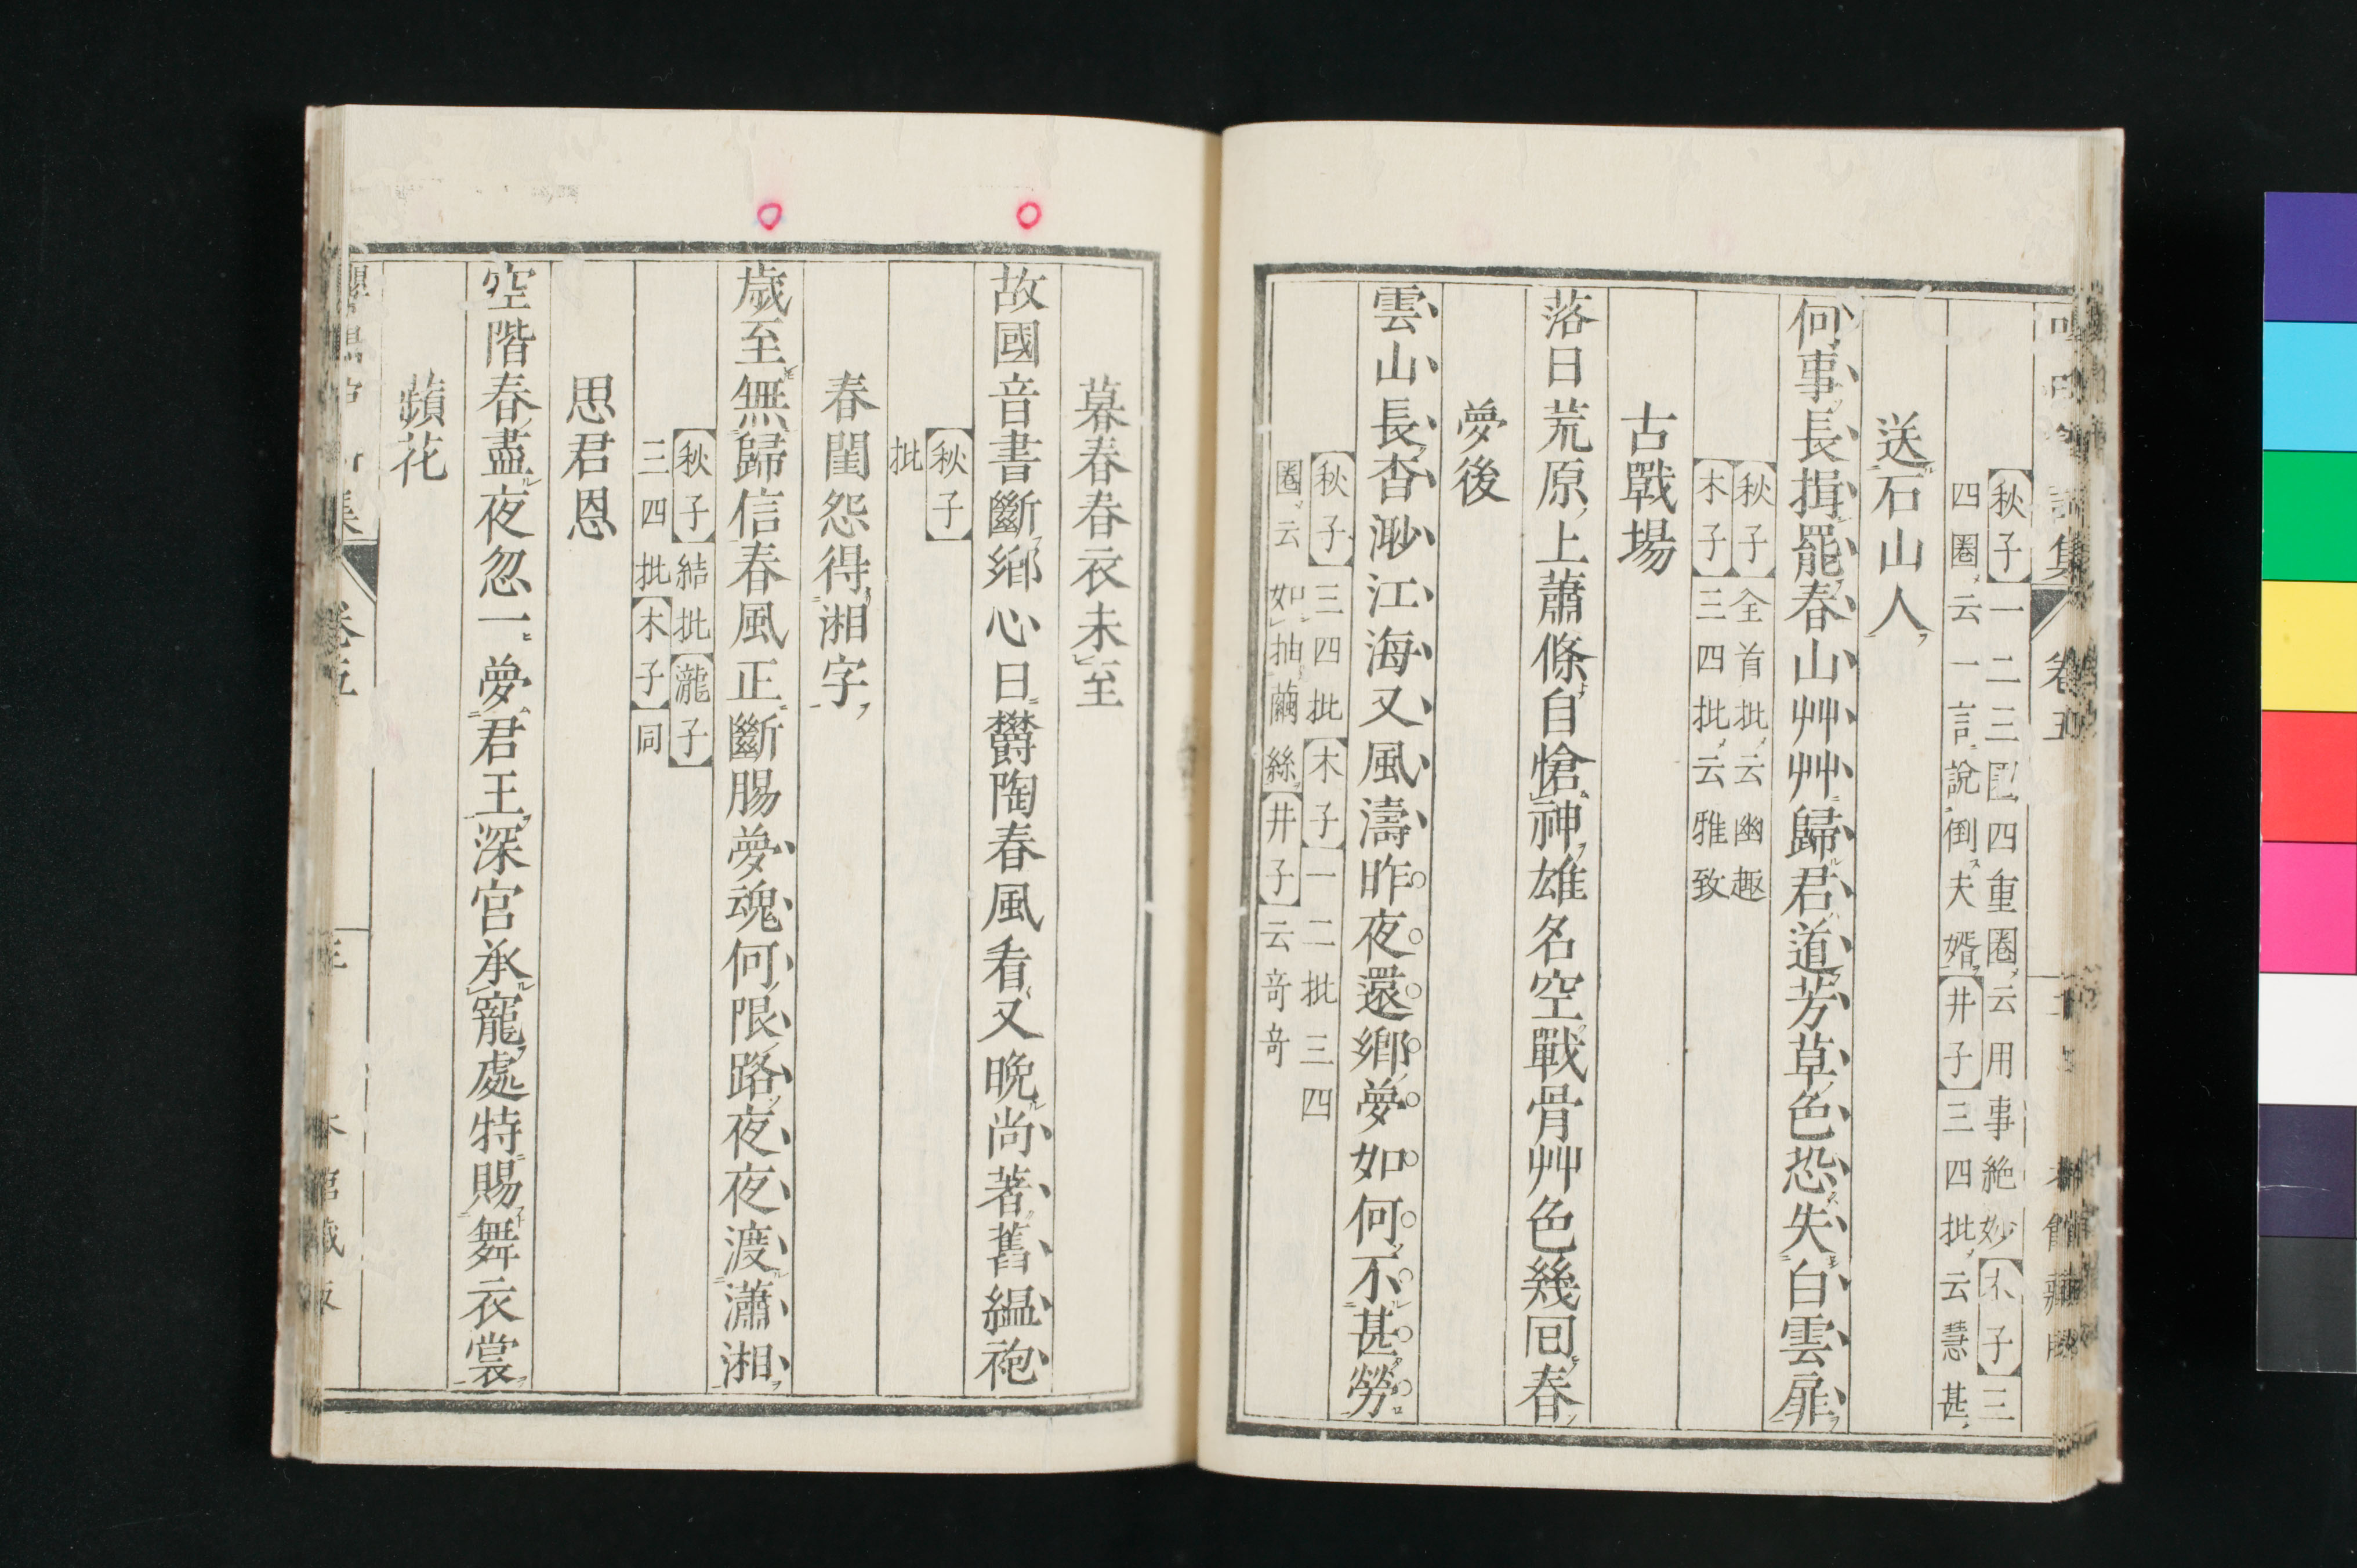 【秋子】一二三圈四重圈云用事絶妙【木子】三
四圈云一言說倒夫婿【井子】三四批云慧甚
送石山人
何事長揖罷春山艸艸歸君道芳草色恐失白雲扉
【秋子】全首批云幽趣
【木子】三四批云雅致
古戰場
落日荒原上蕭條自愴神雄名空戰骨艸色幾回春
夢後
雲山長杳渺江海又風濤昨夜還鄉夢如何不甚勞
【秋子】三四批【木子】一二批三四
圈云如抽繭絲【井子】云奇奇
暮春春衣未至
故國音書斷鄉心日欝陶春風看又晚尚著舊縕袍
【秋子】
批
春閨怨得湘字
歲至無歸信春風正斷腸夢魂何限路夜夜渡瀟湘
【秋子】結批【瀧子】
三四批【木子】同
思君恩
空階春盡夜忽一夢君王深宮承寵處特賜舞衣裳
蘋花
卷五